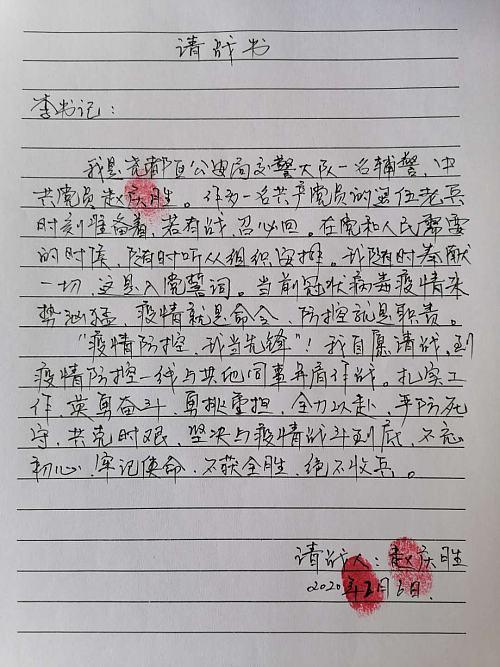 请战书
李书记：
我是尧都区公安局交警大队一名辅警、中
共党员赵庆胜。作为一名共产党员的退伍老兵
时刻准备着，若有战，召必回。在党和人民需要
的时候，随时听从组织安排。我随时奉献
一切，这是入党誓词。当前冠状病毒疫情来
势汹猛，疫情就是命令，防控就是职责。
“疫情防控，我当先锋”！我自愿请战，到
疫情防控一线与其他同事并肩作战。扎实工
作 英勇奋斗，勇挑重担，全力以赴，严防死
守，共克时艰，坚决与疫情战斗到底，不忘
初心，牢记使命，不获全胜，绝不收兵。
请战人：赵庆胜
2020年2月6日.